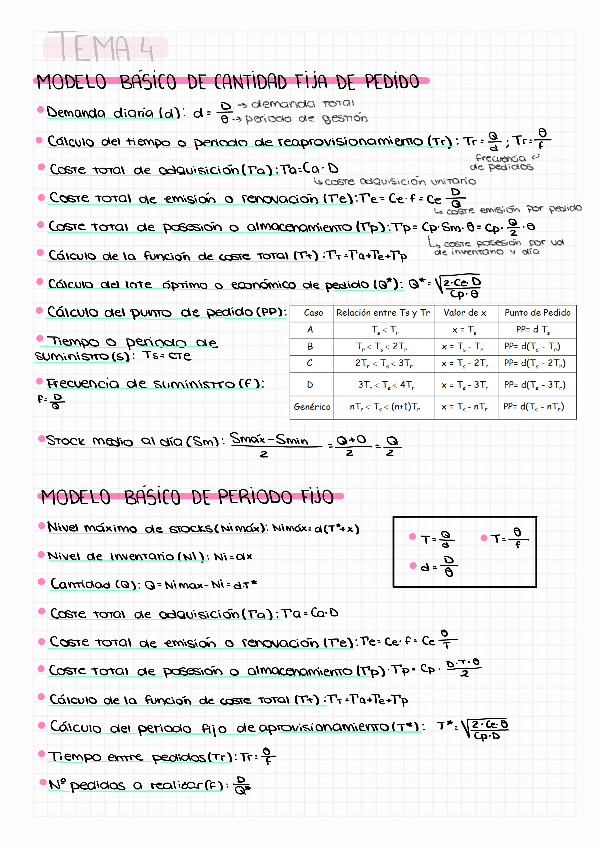 TEMA 4
MODELO BÁSICO DE CANTIDAD FIJA DE PEDIDO
Demanda diaria (d): d = D/θ → demanda total → periodo de gestión
Cálculo del tiempo o periodo de reaprovisionamiento (Tr): Tr = Q/d ; Tr = θ/f
Frecuencia de pedidos
Coste total de adquisición (Ta): Ta = Ca · D
↳ coste adquisición unitario
Coste total de emisión o renovación (Te): Te = Ce · f = Ce D/Q
↳ coste emisión por pedido
Coste total de posesión o almacenamiento (Tp): Tp = Cp · Sm · θ = Cp · Q/2 · θ
↳ coste posesión por ud de inventario y día
Cálculo de la función de coste total (Tt): TT = Ta + Te + Tp
Cálculo del lote óptimo o económico de pedido (Q*): Q* = √(2·Ce·D / Cp·θ)
Cálculo del punto de pedido (PP):
Caso Relación entre Ts y Tr Valor de x Punto de Pedido
A Ts < Tr x = Ts PP= d Ts
B Tr < Ts < 2Tr x = Ts - Tr PP= d(Ts - Tr)
C 2Tr < Ts < 3Tr x = Ts - 2Tr PP= d(Ts - 2Tr)
D 3Tr < Ts < 4Tr x = Ts - 3Tr PP= d(Ts - 3Tr)
Genérico nTr < Ts < (n+1)Tr x = Ts - nTr PP= d(Ts - nTr)
Tiempo o periodo de
suministro (s): Ts = cte
Frecuencia de suministro (f):
f = D/Q
Stock medio al día (Sm): Smáx - Smin / 2 = Q+0 / 2 = Q/2
MODELO BÁSICO DE PERIODO FIJO
Nivel máximo de stocks (Nimáx): Nimáx = d(T*+x)
T = Q/d T = θ/f
d = D/θ
Nivel de inventario (Ni): Ni = dx
Cantidad (Q): Q = Nimax - Ni = dT*
Coste total de adquisición (Ta): Ta = Ca · D
Coste total de emisión o renovación (Te): Te = Ce · f = Ce θ/T
Coste total de posesión o almacenamiento (Tp): Tp = Cp · D·T·θ/2
Cálculo de la función de coste total (Tt): TT = Ta + Te + Tp
Cálculo del periodo fijo de aprovisionamiento (T*): T* = √(2·Ce·θ / Cp·D)
Tiempo entre pedidos (Tr): Tr = θ/f
Nº pedidos a realizar (F): D/Q*